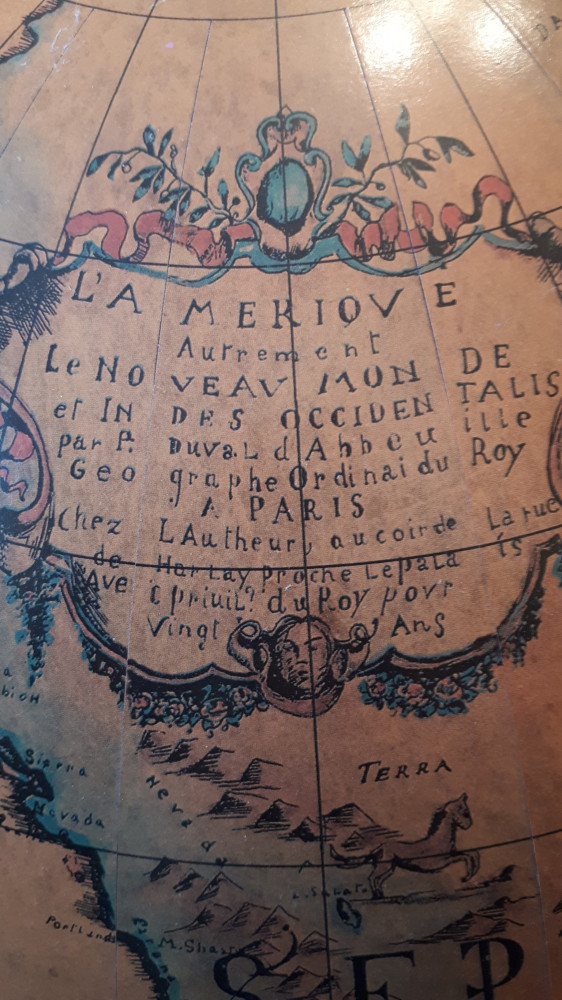 DA
L'A MERIQVE
Autrement
Le NO VEAV MON DE
et IN DES OCCIDEN TALIS
par P. Duval d'Abbeu ille
Geo graphe Ordinai du Roy
A PARIS
Chez LAutheur, au coir de La rue
de Harlay proche Le pala is
Ave c priuil? du Roy povr
vingt Ans
Sierra
Nevada
TERRA
M. Shas
SEP